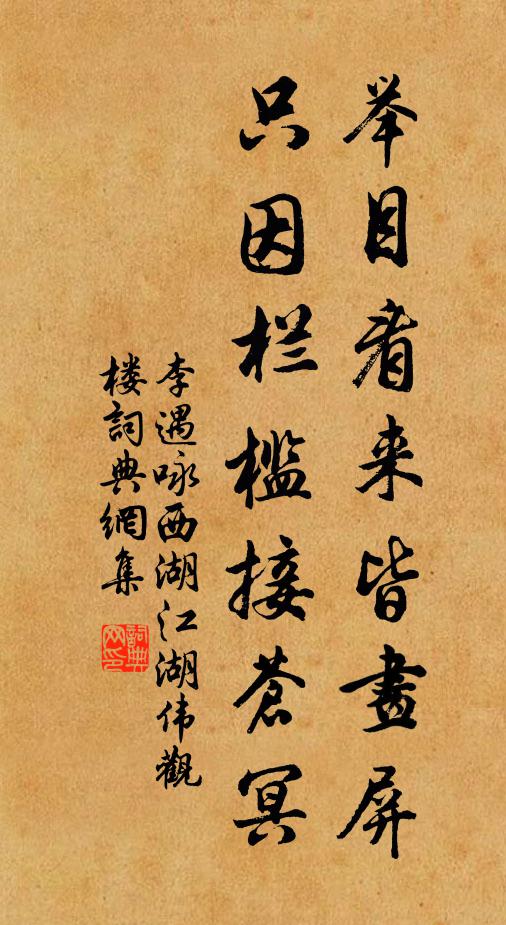 举目看来皆畫屏
只因栏槛接蒼冥
李遇咏西湖江湖伟觀
楼詞典網集
詞典网印